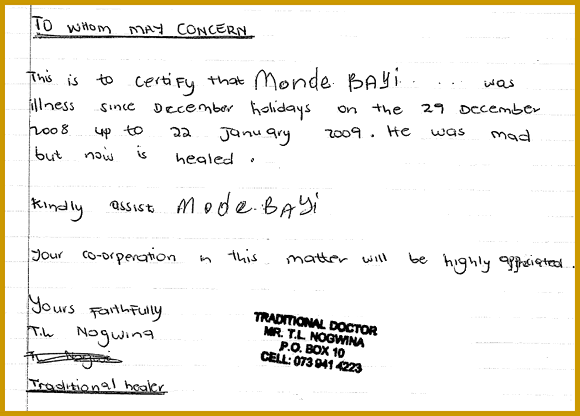 TO WHOM MAY CONCERN
This is to certify that Monde BAYi . . . was
illness since December holidays on the 29 December
2008 up to 22 January 2009. He was mad
but now is healed.
Kindly assist Mode.BAYi
Your co-orperation in this matter will be highly
Yours Faithfully
T.L Nogwina
Traditional healer
TRADITIONAL DOCTOR
MR. T.L. NOGWINA
P.O. BOX 10
CELL: 073 941 4223